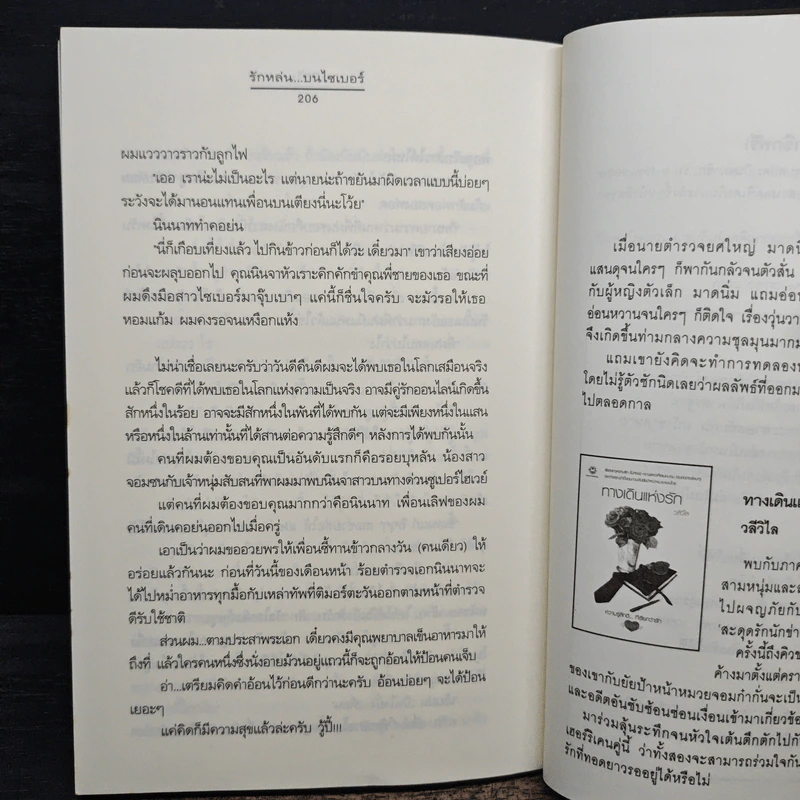 รักหล่น...บนไซเบอร์
206
ผมแวววาวราวกับลูกไฟ
"เออ เราน่ะไม่เป็นอะไร แต่นายน่ะถ้าขยันมาผิดเวลาแบบนี้บ่อยๆ
ระวังจะได้มานอนแทนเพื่อนบนเตียงนี่นะโว้ย"
นินนาททำคอย่น
"นี่ก็เกือบเที่ยงแล้ว ไปกินข้าวก่อนก็ได้วะ เดี๋ยวมา" เขาว่าเสียงอ่อย
ก่อนจะผลุบออกไป คุณนินจาหัวเราะคิกคักขำคุณพี่ชายของเธอ ขณะที่
ผมดึงมือสาวไซเบอร์มาจุ๊บเบาๆ แค่นี้ก็ชื่นใจครับ จะมัวรอให้เธอ
หอมแก้ม ผมคงรอจนเหงือกแห้ง
ไม่น่าเชื่อเลยนะครับว่าวันดีคืนดีผมจะได้พบเธอในโลกเสมือนจริง
แล้วก็โชคดีที่ได้พบเธอในโลกแห่งความเป็นจริง อาจมีคู่รักออนไลน์เกิดขึ้น
สักหนึ่งในร้อย อาจจะมีสักหนึ่งในพันที่ได้พบกัน แต่จะมีเพียงหนึ่งในแสน
หรือหนึ่งในล้านเท่านั้นที่ได้สานต่อความรู้สึกดีๆ หลังการได้พบกันนั้น
คนที่ผมต้องขอบคุณเป็นอันดับแรกก็คือรอยบุหลัน น้องสาว
จอมซนกับเจ้าหนุ่มสับสนที่พาผมมาพบนินจาสาวบนทางด่วนซูเปอร์ไฮเวย์
แต่คนที่ผมต้องขอบคุณมากกว่าคือนินนาท เพื่อนเลิฟของผม
คนที่เดินคอย่นออกไปเมื่อครู่
เอาเป็นว่าผมขออวยพรให้เพื่อนซี้ทานข้าวกลางวัน (คนเดียว) ให้
อร่อยแล้วกันนะ ก่อนที่วันนี้ของเดือนหน้า ร้อยตำรวจเอกนินนาทจะ
ได้ไปหม่ำอาหารทุกมื้อกับเหล่าทัพที่ติมอร์ตะวันออกตามหน้าที่ตำรวจ
ดีรับใช้ชาติ
ส่วนผม...ตามประสาพระเอก เดี๋ยวคงมีคุณพยาบาลเข็นอาหารมาให้
ถึงที่ แล้วใครคนหนึ่งซึ่งนั่งอายม้วนอยู่แถวนี้ก็จะถูกอ้อนให้ป้อนคนเจ็บ
อ่า...เตรียมคิดคำอ้อนไว้ก่อนดีกว่านะครับ อ้อนบ่อยๆ จะได้ป้อน
เยอะๆ
แค่คิดก็มีความสุขแล้วล่ะครับ วู้ปี้!!!
เมื่อนายตำรวจยศใหญ่ มาดนิ่
แสนดุจนใครๆ ก็พากันกลัวจนตัวสั่น
กับผู้หญิงตัวเล็ก มาดนิ่ม แถมอ่อน
อ่อนหวานจนใครๆ ก็ติดใจ เรื่องวุ่นวา
จึงเกิดขึ้นท่ามกลางความชุลมุนมากม
แถมเขายังคิดจะทำการทดลองห
โดยไม่รู้ตัวซักนิดเลยว่าผลลัพธ์ที่ออกม
ไปตลอดกาล
ทางเดินแห่งรัก
วลีวิไล
ทางเดินแ
วลีวิไล
พบกับภาค
สามหนุ่มและส
ไปผจญภัยกับ
'สะดุดรักนักข่า
ครั้งนี้ถึงคิวข
ค้างมาตั้งแต่ครา
ของเขากับยัยป้าหน้าหมวยจอมกำกั่นจะเป็น
และอดีตอันซับซ้อนซ่อนเงื่อนเข้ามาเกี่ยวข้อ
มาร่วมลุ้นระทึกจนหัวใจเต้นตึกตักไปกั
เฮอร์ริเคนคู่นี้ ว่าทั้งสองจะสามารถร่วมใจกัน
รักที่ทอดยาวรออยู่ได้หรือไม่